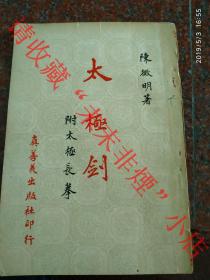 2019/5/3 16:55
陳微明著
太極剑
附太極長拳
真善美出版社印行
请收藏“未未非煙”小店